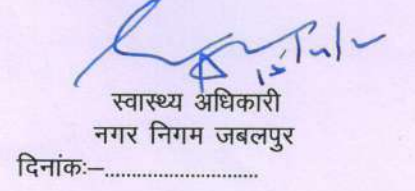 स्वास्थ्य अधिकारी
नगर निगम जबलपुर
दिनांकः–............................